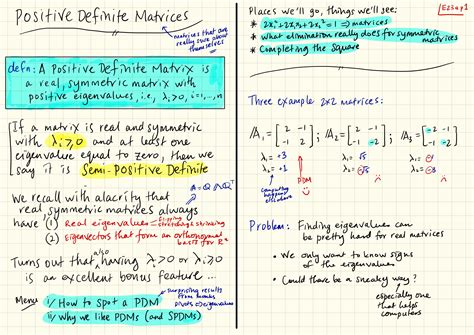 Positive Definite Matrices
matrices that are
really sure about
themselves
defn: A Positive Definite Matrix is
a real, symmetric matrix with
positive eigenvalues, i.e., λᵢ>0, i=1,...,n
If a matrix is real and symmetric
with λᵢ≥0 and at least one
eigenvalue equal to zero, then we
say it is Semi-Positive Definite
A=QΛQᵀ
We recall with alacrity that
real, symmetric matrices always
have (1) Real eigenvalues = flipping stretching shrinking
(2) Eigenvectors that form an orthonormal
basis for Rⁿ
Turns out that also having λ>0 or λᵢ≥0
is an excellent bonus feature...
Menu
1/. How to spot a PDM
surprising results
from
pivots eigenvalues
11/. Why we like PDMs (and SPDMs)
Places we'll go, things we'll see:
E25ap1
* 2x₁²-2x₁x₂+2x₂²=1 ⇒ matrices
* What elimination really does for symmetric
matrices
* Completing the Square
Three example 2x2 matrices:
A₁ = [2 -1 -1 2]; A₂ = [2 -1 -1 -2]; A₃ = [-2 -1 -1 -2]
computing
happened
elsewhere
PDM
Problem: Finding eigenvalues can
be pretty hard for real matrices
• We only want to know signs
of the eigenvalues
• Could there be a sneaky way?
especially one
that helps
computers